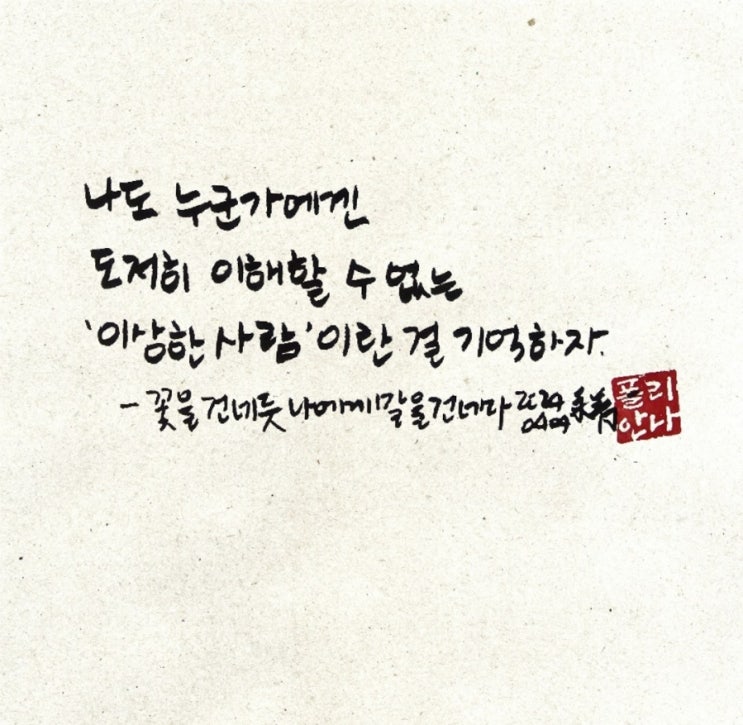 나도 누군가에겐
도저히 이해할 수 없는
'이상한 사람'이란 걸 기억하자.
- 꽃을 건네듯 나에게 말을 건네다 2024
0409
폴리
안나